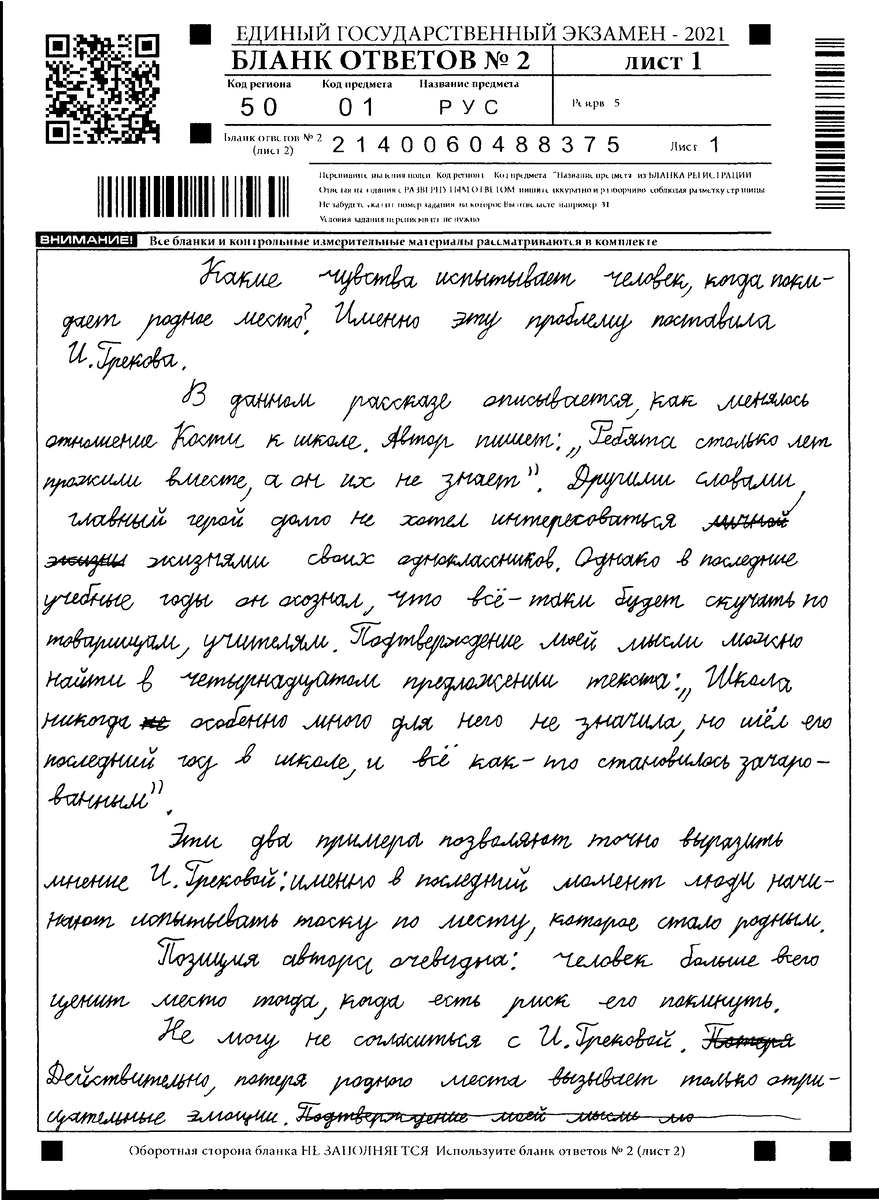 ЕДИНЫЙ ГОСУДАРСТВЕННЫЙ ЭКЗАМЕН - 2021
БЛАНК ОТВЕТОВ № 2 лист 1
Код региона Код предмета Название предмета
50 01 РУС Резерв 5
Бланк ответов № 2 (лист 2) 2140060488375 Лист 1
Перепишите значения полей Код региона Код предмета Название предмета из БЛАНКА РЕГИСТРАЦИИ
Отвечая на задания с РАЗВЕРНУТЫМ ОТВЕТОМ пишите аккуратно и разборчиво соблюдая разметку страницы
Не забудьте указать номер задания на которое Вы отвечаете например 31
Условия задания переписывать не нужно
ВНИМАНИЕ! Все бланки и контрольные измерительные материалы рассматриваются в комплекте
Какие чувства испытывает человек, когда поки-
дает родное место? Именно эту проблему поставила
И. Грекова.
В данном рассказе описывается, как менялось
отношение Кости к школе. Автор пишет: „Ребята столько лет
прожили вместе, а он их не знает". Другими словами,
главный герой долго не хотел интересоваться личной
жизни жизнями своих одноклассников. Однако в последние
учебные годы он осознал, что всё-таки будет скучать по
товарищам, учителям. Подтверждение моей мысли можно
найти в четырнадцатом предложении текста: „Школа
никогда не особенно много для него не значила, но шёл его
последний год в школе, и всё как-то становилось зачаро-
ванным".
Эти два примера позволяют точно выразить
мнение И. Грековой: именно в последний момент люди начи-
нают испытывать тоску по месту, которое стало родным.
Позиция автора очевидна: человек больше всего
ценит место тогда, когда есть риск его покинуть.
Не могу не согласиться с И. Грековой. Потеря
Действительно, потеря родного места вызывает только отри-
цательные эмоции. Подтверждение моей мысли мо
Оборотная сторона бланка НЕ ЗАПОЛНЯЕТСЯ Используйте бланк ответов № 2 (лист 2)